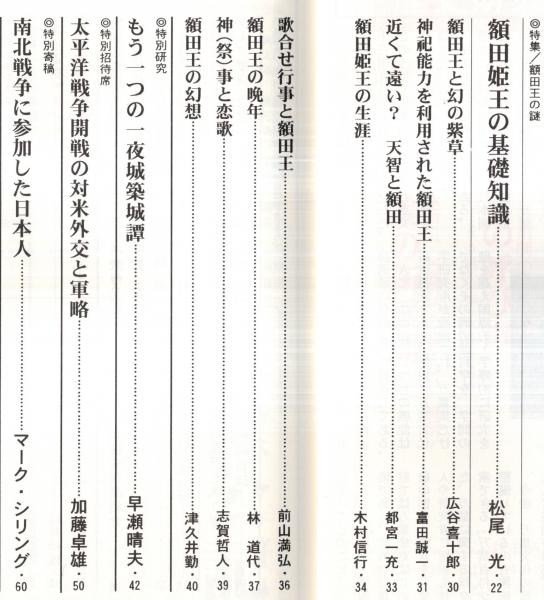 ◎特集/額田王の謎
額田姫王の基礎知識……松尾 光・22
額田王と幻の紫草……広谷喜十郎・30
神祀能力を利用された額田王……富田誠一・31
近くて遠い? 天智と額田……都宮一充・33
額田姫王の生涯……木村信行・34
歌合せ行事と額田王……前山満弘・36
額田王の晩年……林 道代・37
神(祭)事と恋歌……志賀哲人・39
額田王の幻想……津久井勤・40
◎特別研究
もう一つの一夜城築城譚……早瀬晴夫・42
◎特別招待席
太平洋戦争開戦の対米外交と軍略……加藤卓雄・50
◎特別寄稿
南北戦争に参加した日本人……マーク・シリング・60